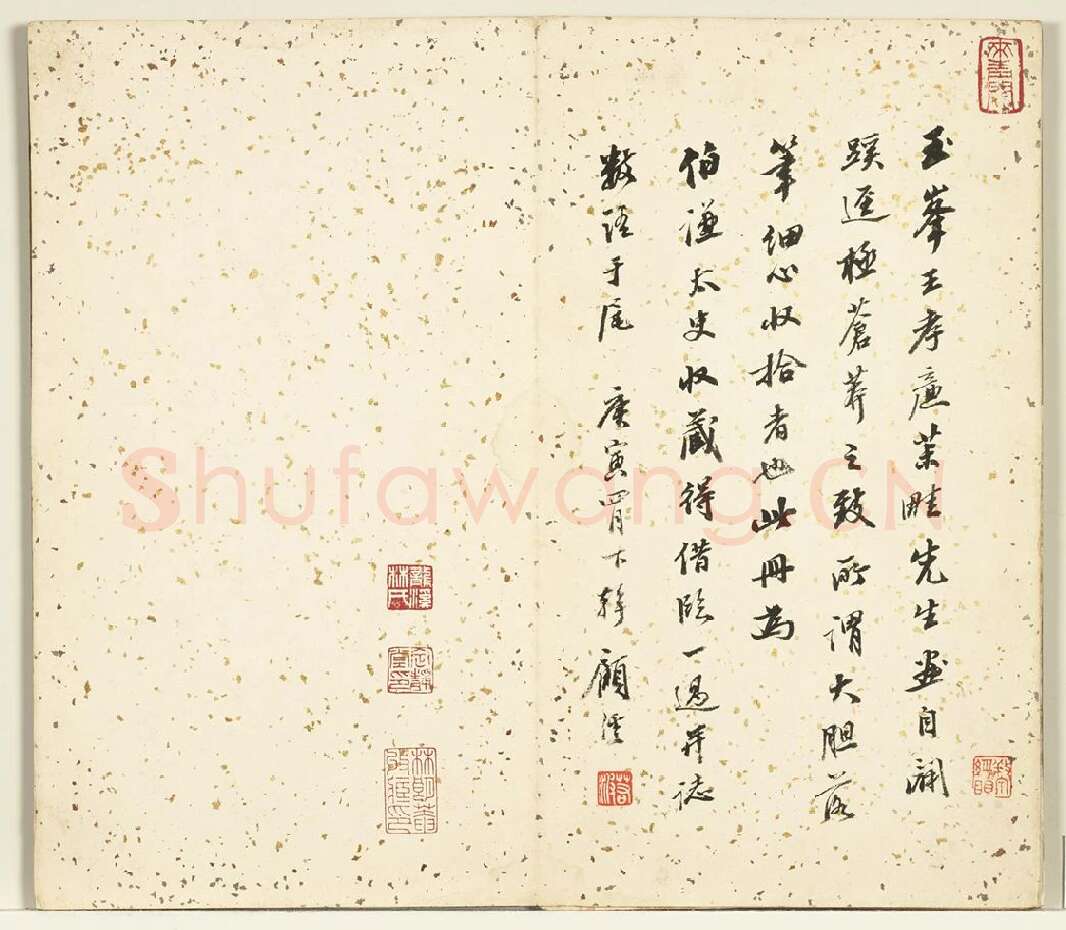 玉峯王孝廉茉畦先生画自闢
蹊迳極蒼莽之致所謂大胆落
筆细心收拾者也此冊為
伯謙太史收藏得借臨一過并誌
数语于尾 庚寅四月下澣 顧澐
龍溪林氏
Shufawang.CN